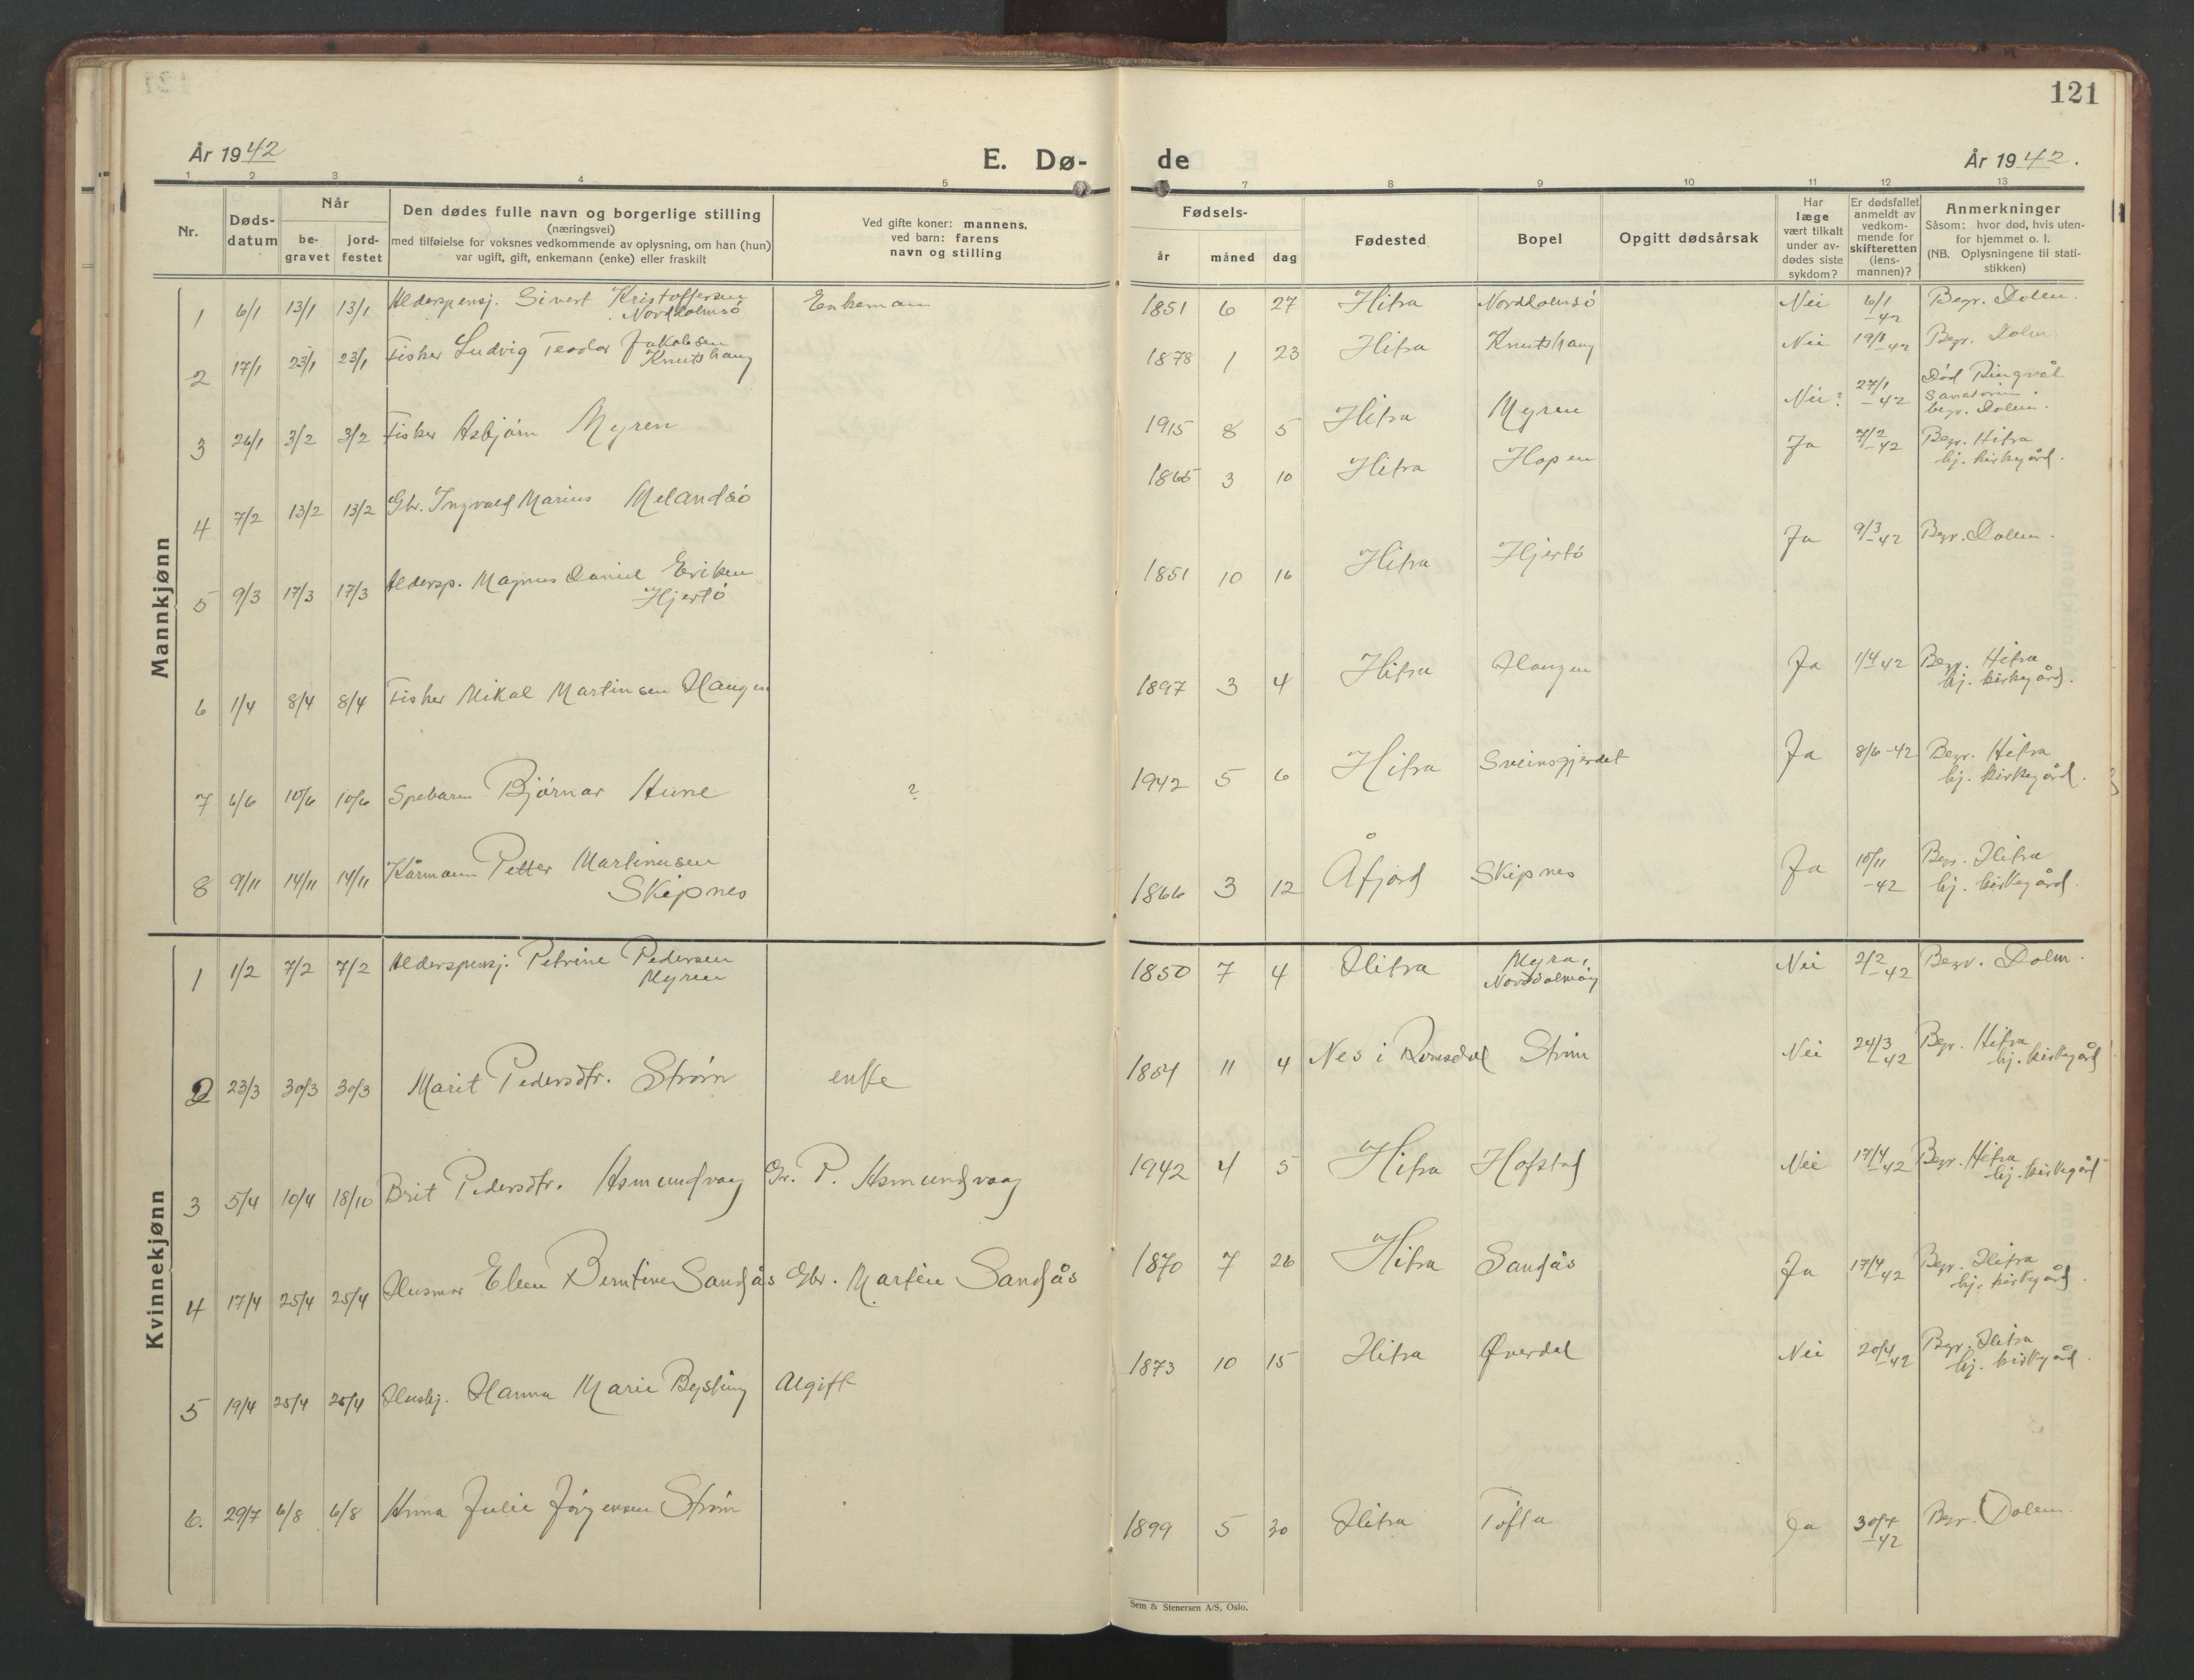 121
År 1942
E. Dø-
de
År 1942.
1 2 3 4 5 7 8 9 10 11 12 13
Nr.
Døds-
datum
Når
be-
gravet
jord-
festet
Den dødes fulle navn og borgerlige stilling
(næringsvei)
med tilføielse for voksnes vedkommende av oplysning, om han (hun)
var ugift, gift, enkemann (enke) eller fraskilt
Ved gifte koner: mannens,
ved barn: farens
navn og stilling
Fødsels-
år
måned
dag
Fødested
Bopel
Opgitt dødsårsak
Har
læge
vært tilkalt
under av-
dødes siste
sykdom?
Er dødsfallet
anmeldt av
vedkom-
mende for
skifteretten
(lens-
mannen)?
Anmerkninger
Såsom: hvor død, hvis uten-
for hjemmet o. l.
(NB. Oplysningene til stati-
stikken)
Mannkjønn
1 6/1 13/1 13/1 Alderspensj. Sivert Kristoffersen Enkemann 1851 6 27 Hitra Norddolmsö Nei 6/1 Begr. Dolm.
Norddolmsö -42
2 17/1 23/1 23/1 Fisker Ludvig Teodor Jakobsen 1878 1 23 Hitra Knutshaug Nei 19/1 -42 Begr. Dolm
Knutshaug
3 26/1 3/2 3/2 Fisker Asbjørn Myren 1915 8 5 Hitra Myren Nei? 27/1 -42 Død Ringvål
Sanatorium.
begr. Dolm.
4 7/2 13/2 13/2 Gbr. Ingvald Marius Melandsö 1865 3 10 Hitra Hopen Ja 7/2 -42 Begr. Hitra
hj. kirkegård.
5 9/3 17/3 17/3 Aldersp. Magnus Daniel Eriksen 1851 10 16 Hitra Hjertö Ja 9/3 -42 Begr. Dolm.
Hjertö
6 1/4 8/4 8/4 Fisker Mikal Martinsen Haugen 1897 3 4 Hitra Haugen Ja 1/4 42 Begr. Hitra
hj. kirkegård.
7 6/6 10/6 10/6 Spebarn Bjørnar Hune ? 1942 5 6 Hitra Sveinsgjerdet Ja 8/6-42 Begr. Hitra
hj. kirkegård.
8 9/11 14/11 14/11 Kårmann Petter Martinusen 1866 3 12 Åfjord Skipnes Ja 10/11 Begr. Hitra
Skipnes -42 hj. kirkegård.
Kvinnekjønn
1 1/2 7/2 7/2 Alderspensj. Petrine Pedersen 1850 7 4 Hitra Myra, Nei 2/2 -42 Begr. Dolm.
Myren
2 23/3 30/3 30/3 Marit Pedersdtr. Strøm enke 1854 11 4 Nes i Romsdal Strøm Nei 24/3 -42 Begr. Hitra
hj. kirkegård
3 5/4 10/4 18/10 Brit Pedersdtr. Asmundvaag Gr. P. Asmundvaag 1942 4 5 Hitra Hofstad Nei 17/4 42 Begr. Hitra
hj. kirkegård
4 17/4 25/4 25/4 Husmor Elen Berntine Sandsås Gbr. Martin Sandsås 1870 7 26 Hitra Sandsås Ja 17/4 42 Begr. Hitra
hj. kirkegård.
5 19/4 25/4 25/4 Hushj. Hanna Marie Bysting Ugift 1873 10 15 Hitra Øverdal Nei 20/4 -42 Begr. Hitra
hj. kirkegård.
6. 29/7 6/8 6/8 Anna Julie Jörgensen Strøm 1899 5 30 Hitra Töfta Ja 30/7 Begr. Dolm.
-42
Sem & Stenersen A/S, Oslo.